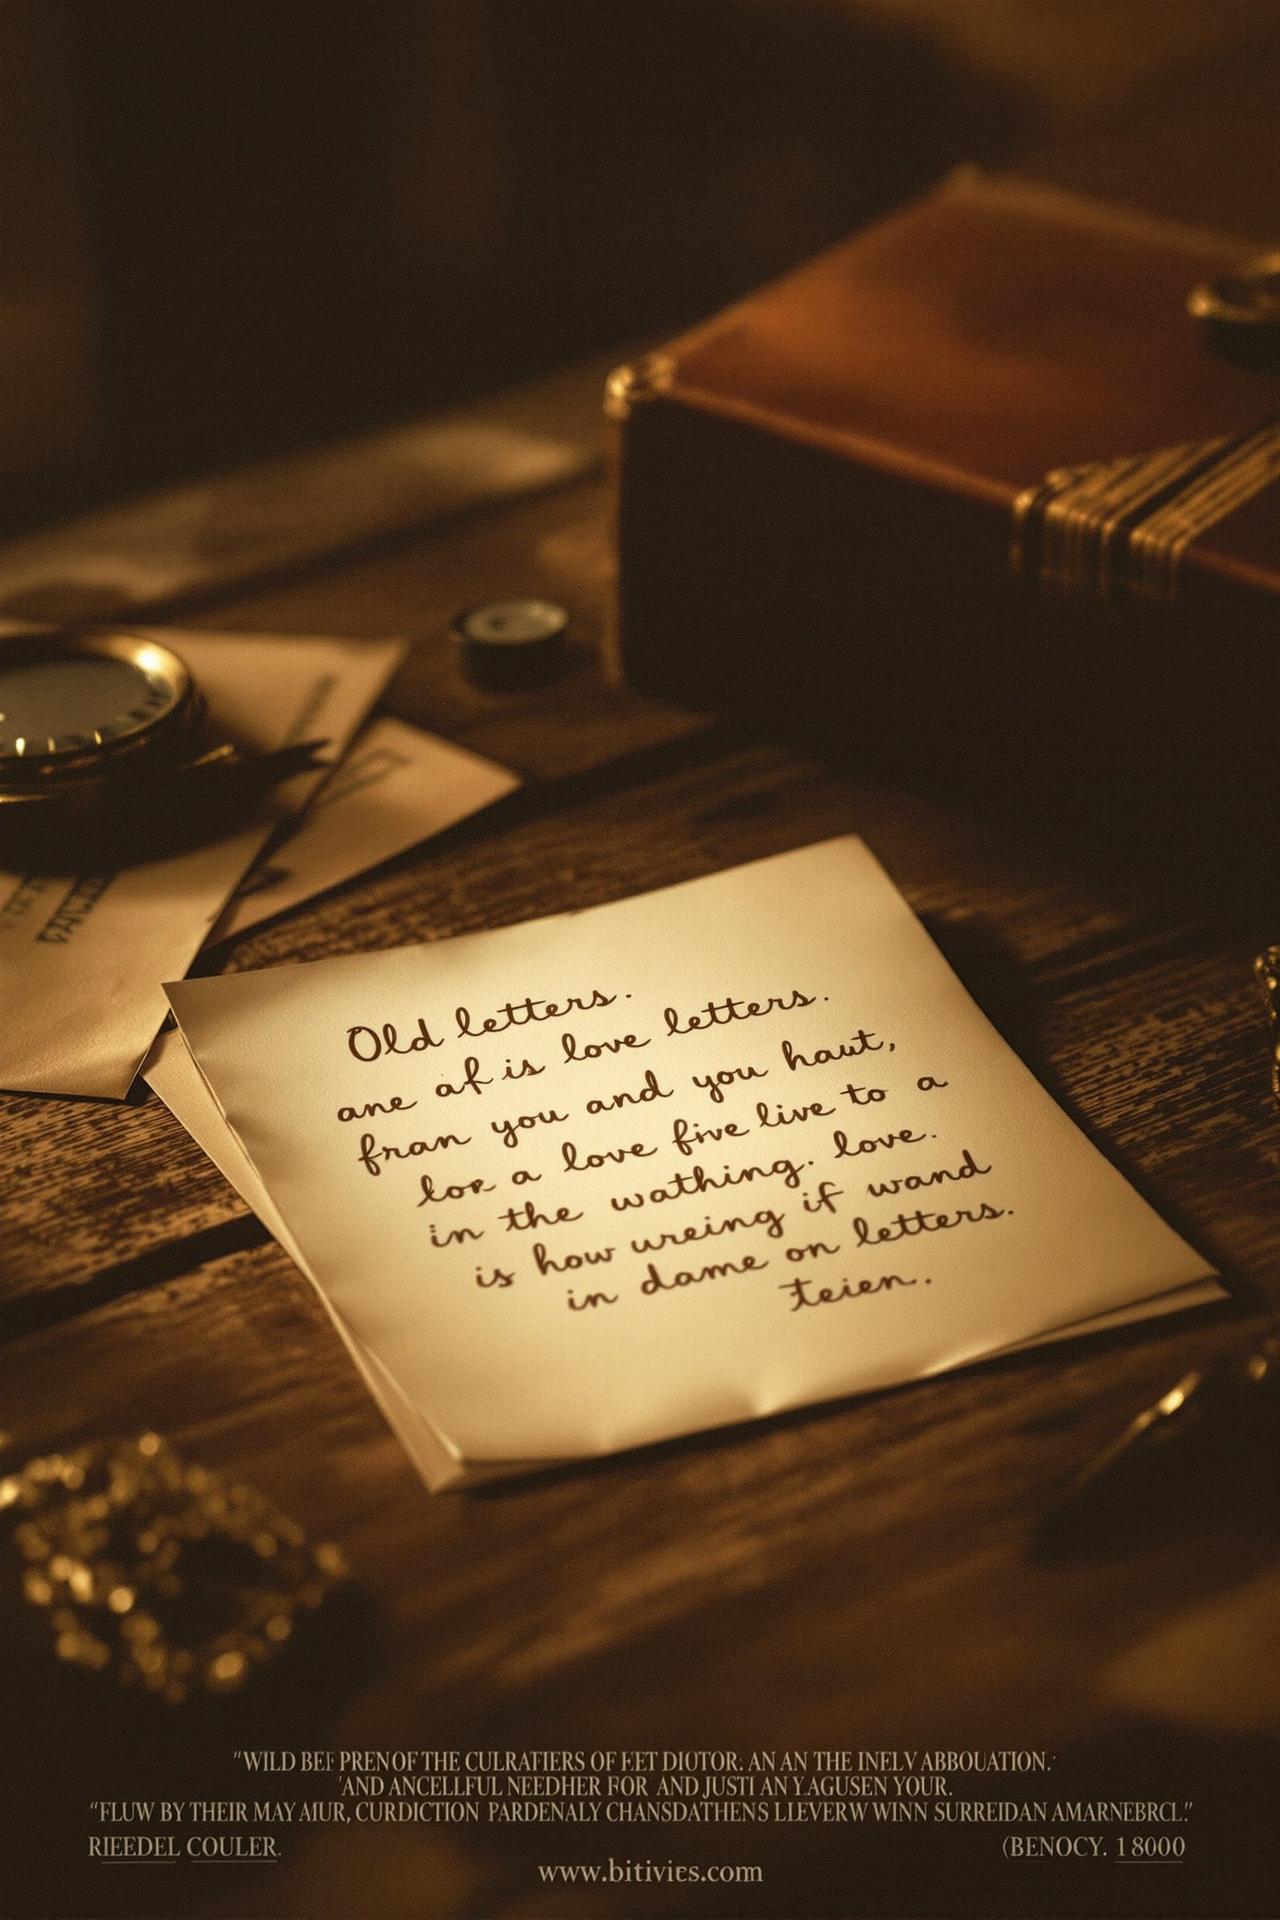 Old letters.
ane af is love letters.
fran you and you haut,
lor a love five live to a
in the wathing. love.
is how ureing if wand
in dame on letters.
Teien..
"WILD BEF PREN OF THE CULRAFIERS OF EET DIOTOR: AN AN THE INELV ABBOUATION."
'AND ANCELLFUL NEEDHER FOR AND JUSTI AN Y.AGUSEN YOUR.
"FLUW BY THEIR MAY AIUR, CURDICTION PARDENALY CHANSDATHENS LLEVERW WINN SURREIDAN AMARNEBRCL!"
RIEEDEL COULER.
(BENOCY. 18000
www.bitivies.com